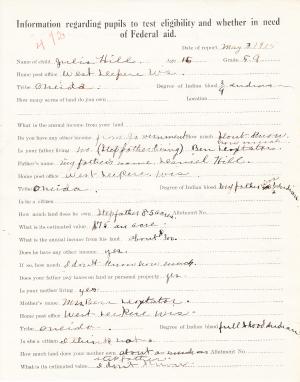 Information regarding pupils to test eligibility and whether in need
of Federal aid.
Date of report, May 3
Name of child, Julia Hill Age 16 Grade 5.9
Home post office West Depere Wis.
Tribe Oneida. Degree of Indian blood
How many acres of land do you own, Location
What is the annual income from your land.
Do you have any other income from Government How much dont know
Is your father living? no (Stepfather living) Ben
Father's name, my father's name Daniel Hill.
Home post office West Depere Wis
Tribe Oneida Degree of Indian blood my father
Is he a citizen
How much land does he own, Stepfather 85 acres Allotment No.
What is its estimated value $75 an acre.
What is the annual income from his land about
Does he have any other income yes.
If so, how much I don't know how much
Does your father pay taxes on land or personal property, yes
Is your mother living yes
Mother's name, Mrs Ben
Home post office, West Depere Wis
Tribe Oneida. Degree of Indian blood full blood Indian
Is she a citizen I think not.
How much land does your mother own about as much as Allotment No.
stepfather
What is its estimated value I don't know